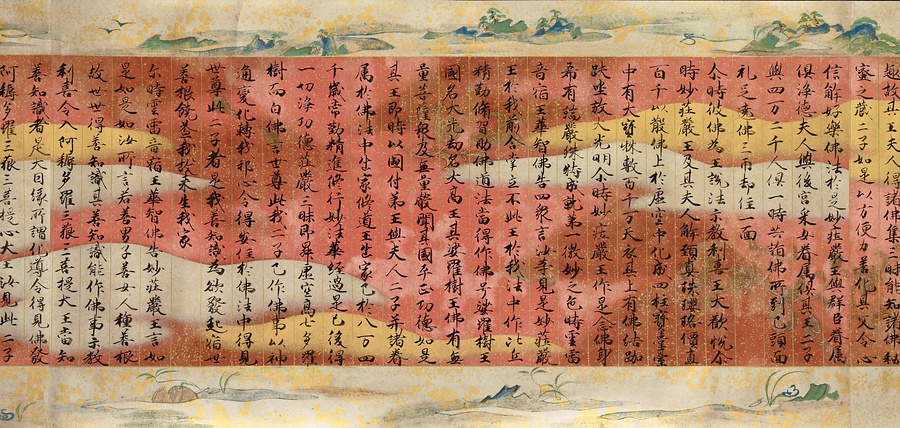 趣故其王夫人得諸佛集三昧能知諸佛秘
密之藏二子如是以方便力善化其父令心
信解好樂佛法於是妙莊嚴王與群臣眷属
俱淨德夫人與後宮采女眷属俱其王二子
與四万二千人俱一時共詣佛所到已頭面
礼足繞佛三帀却住一面
尒時彼佛為王說法示教利喜王大歡悅尒
時妙莊嚴王及其夫人解頸真珠瓔珞價直
百千以散佛上於虛空中化成四柱寶臺臺
中有大寶牀敷百千万天衣其上有佛結跏
趺坐放大光明尒時妙莊嚴王作是念佛身
希有端嚴殊特成就第一微妙之色時雲雷
音宿王華智佛告四衆言汝等見是妙莊嚴
王於我前合掌立不此王於我法中作比丘
精勤脩習助佛道法當得作佛号娑羅樹王
國名大光劫名大高王其娑羅樹王佛有无
量菩薩衆及无量聲聞其國平正功德如是
其王即時以國付弟王與夫人二子并諸眷
属於佛法中出家修道王出家已於八万四
千歲常勤精進修行妙法華經過是已後得
一切淨功德莊嚴三昧即昇虛空高七多羅
樹而白佛言世尊此我二子已作佛事以神
通變化轉我邪心令得安住於佛法中得見
世尊此二子者是我善知識為欲發起宿世
善根饒益我故来生我家
尒時雲雷音宿王華智佛告妙莊嚴王言如
是如是如汝所言若善男子善女人種善根
故世世得善知識其善知識能作佛事示教
利喜令入阿耨多羅三藐三菩提大王當知
善知識者是大因緣所謂化導令得見佛發
阿耨多羅三藐三菩提心大王汝見此二子